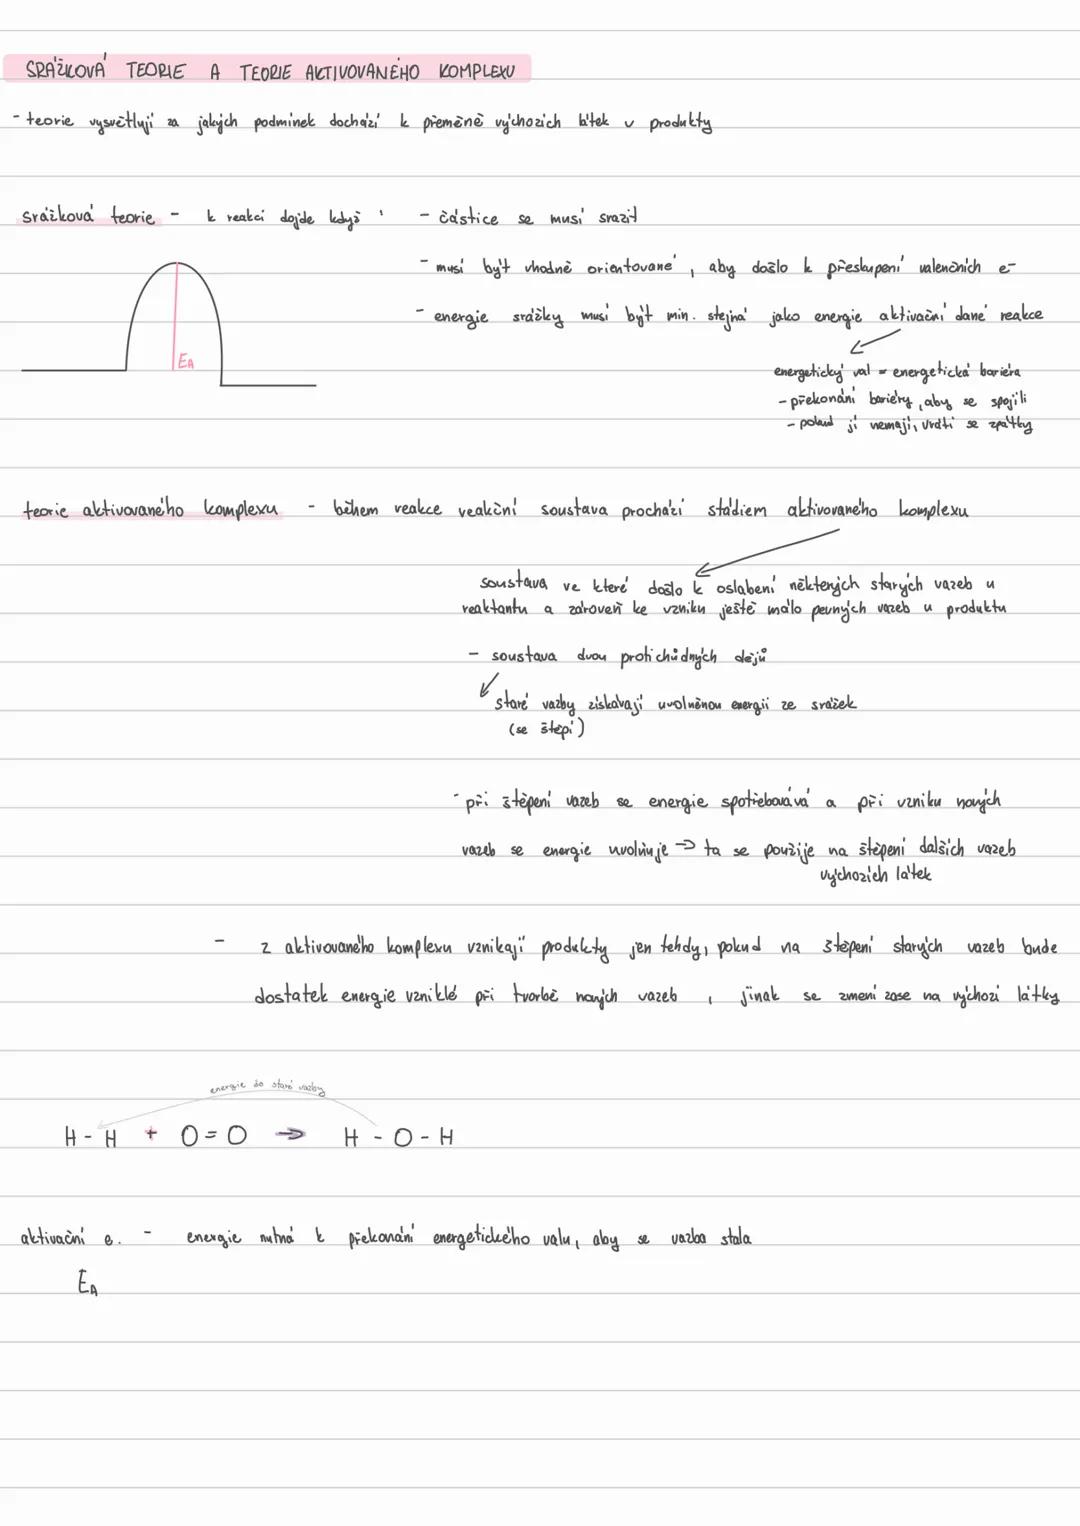 SRÁŽKOVÁ TEORIE A TEORIE AKTIVOVANÉHO KOMPLEXU
- teorie vysvětlují za jakých podmínek dochází k přeměně výchozích látek v produkty
srážková teorie - k reakci dojde když: - částice se musí srazit
- musí být vhodně orientované, aby došlo k přeskupení valenčních e-
- energie srážky musí být min. stejná jako energie aktivační dané reakce
EA
energetický val = energetická bariéra
- překonání bariéry, aby se spojili
- pokud jí nemají, vrátí se zpátky
teorie aktivovaného komplexu - během reakce reakční soustava prochází stádiem aktivovaného komplexu
soustava ve které došlo k oslabení některých starých vazeb u
reaktantu a zároveň ke vzniku ještě málo pevných vazeb u produktu
- soustava dvou protichůdných dějů
staré vazby získávají uvolněnou energii ze srážek
(se štěpí)
- při štěpení vazeb se energie spotřebovává a při vzniku nových
vazeb se energie uvolňuje → ta se použije na štěpení dalších vazeb
výchozích látek
- z aktivovaného komplexu vznikají produkty jen tehdy, pokud na štěpení starých vazeb bude
dostatek energie vzniklé při tvorbě nových vazeb, jinak se zmení zase na výchozí látky
energie do staré vazby
H - H + O = O → H - O - H
aktivační e. - energie nutná k překonání energetického valu, aby se vazba stala
EA